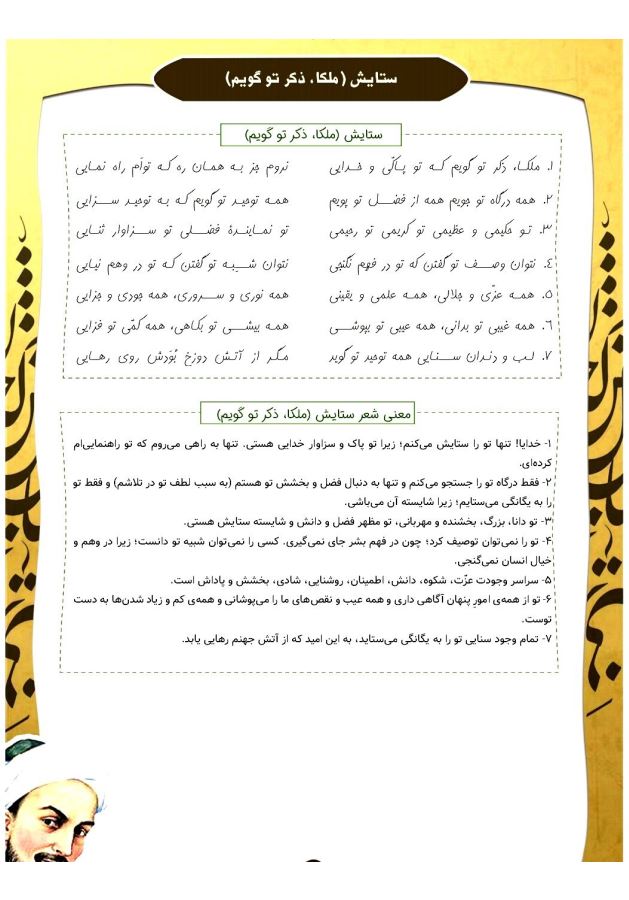 ستایش (ملکا، ذکر تو گویم)
ستایش (ملکا، ذکر تو گویم)
۱. ملکـا، ذکر تو گویم کـه تو پـاکّی و خـدایی نروم جز بـه همـان ره کـه توأم راه نمـایی
۲. همه درگاه تو جویم همه از فضـل تو پویم همـه توحیـد تو گویم که به توحید سـزایی
۳. تـو حکیمی و عظیمی تو کریمی تو رحیمی تو نمـاینـدهٔ فضـلی تو سـزاوار ثنـایی
٤. نتوان وصـف تو گفتن که تو در فهم نگنجی نتوان شـبـه تو گفتن کـه تو در وهم نیایی
٥. همـه عزّی و جلالی، همـه علمی و یقینی همه نوری و سـروری، همه جودی و جزایی
٦. همه غیبی تو بدانی، همه عیبی تو بپوشـی همـه بیشـی تو بکـاهی، همه کمّی تو فزایی
۷. لب و دندان سـنایی همه توحید تو گوید مگر از آتش دوزخ بُوَدش روی رهـایی
معنی شعر ستایش (ملکا، ذکر تو گویم)
۱- خدایا! تنها تو را ستایش می‌کنم؛ زیرا تو پاک و سزاوار خدایی هستی. تنها به راهی می‌روم که تو راهنمایی‌ام
کرده‌ای.
۲- فقط درگاه تو را جستجو می‌کنم و تنها به دنبال فضل و بخشش تو هستم (به سبب لطف تو در تلاشم) و فقط تو
را به یگانگی می‌ستایم؛ زیرا شایسته آن می‌باشی.
۳- تو دانا، بزرگ، بخشنده و مهربانی، تو مظهر فضل و دانش و شایسته ستایش هستی.
۴- تو را نمی‌توان توصیف کرد؛ چون در فهم بشر جای نمی‌گیری. کسی را نمی‌توان شبیه تو دانست؛ زیرا در وهم و
خیال انسان نمی‌گنجی.
۵- سراسر وجودت عزّت، شکوه، دانش، اطمینان، روشنایی، شادی، بخشش و پاداش است.
۶- تو از همه‌ی امور پنهان آگاهی داری و همه عیب و نقص‌های ما را می‌پوشانی و همه‌ی کم و زیاد شدن‌ها به دست
توست.
۷- تمام وجود سنایی تو را به یگانگی می‌ستاید، به این امید که از آتش جهنم رهایی یابد.